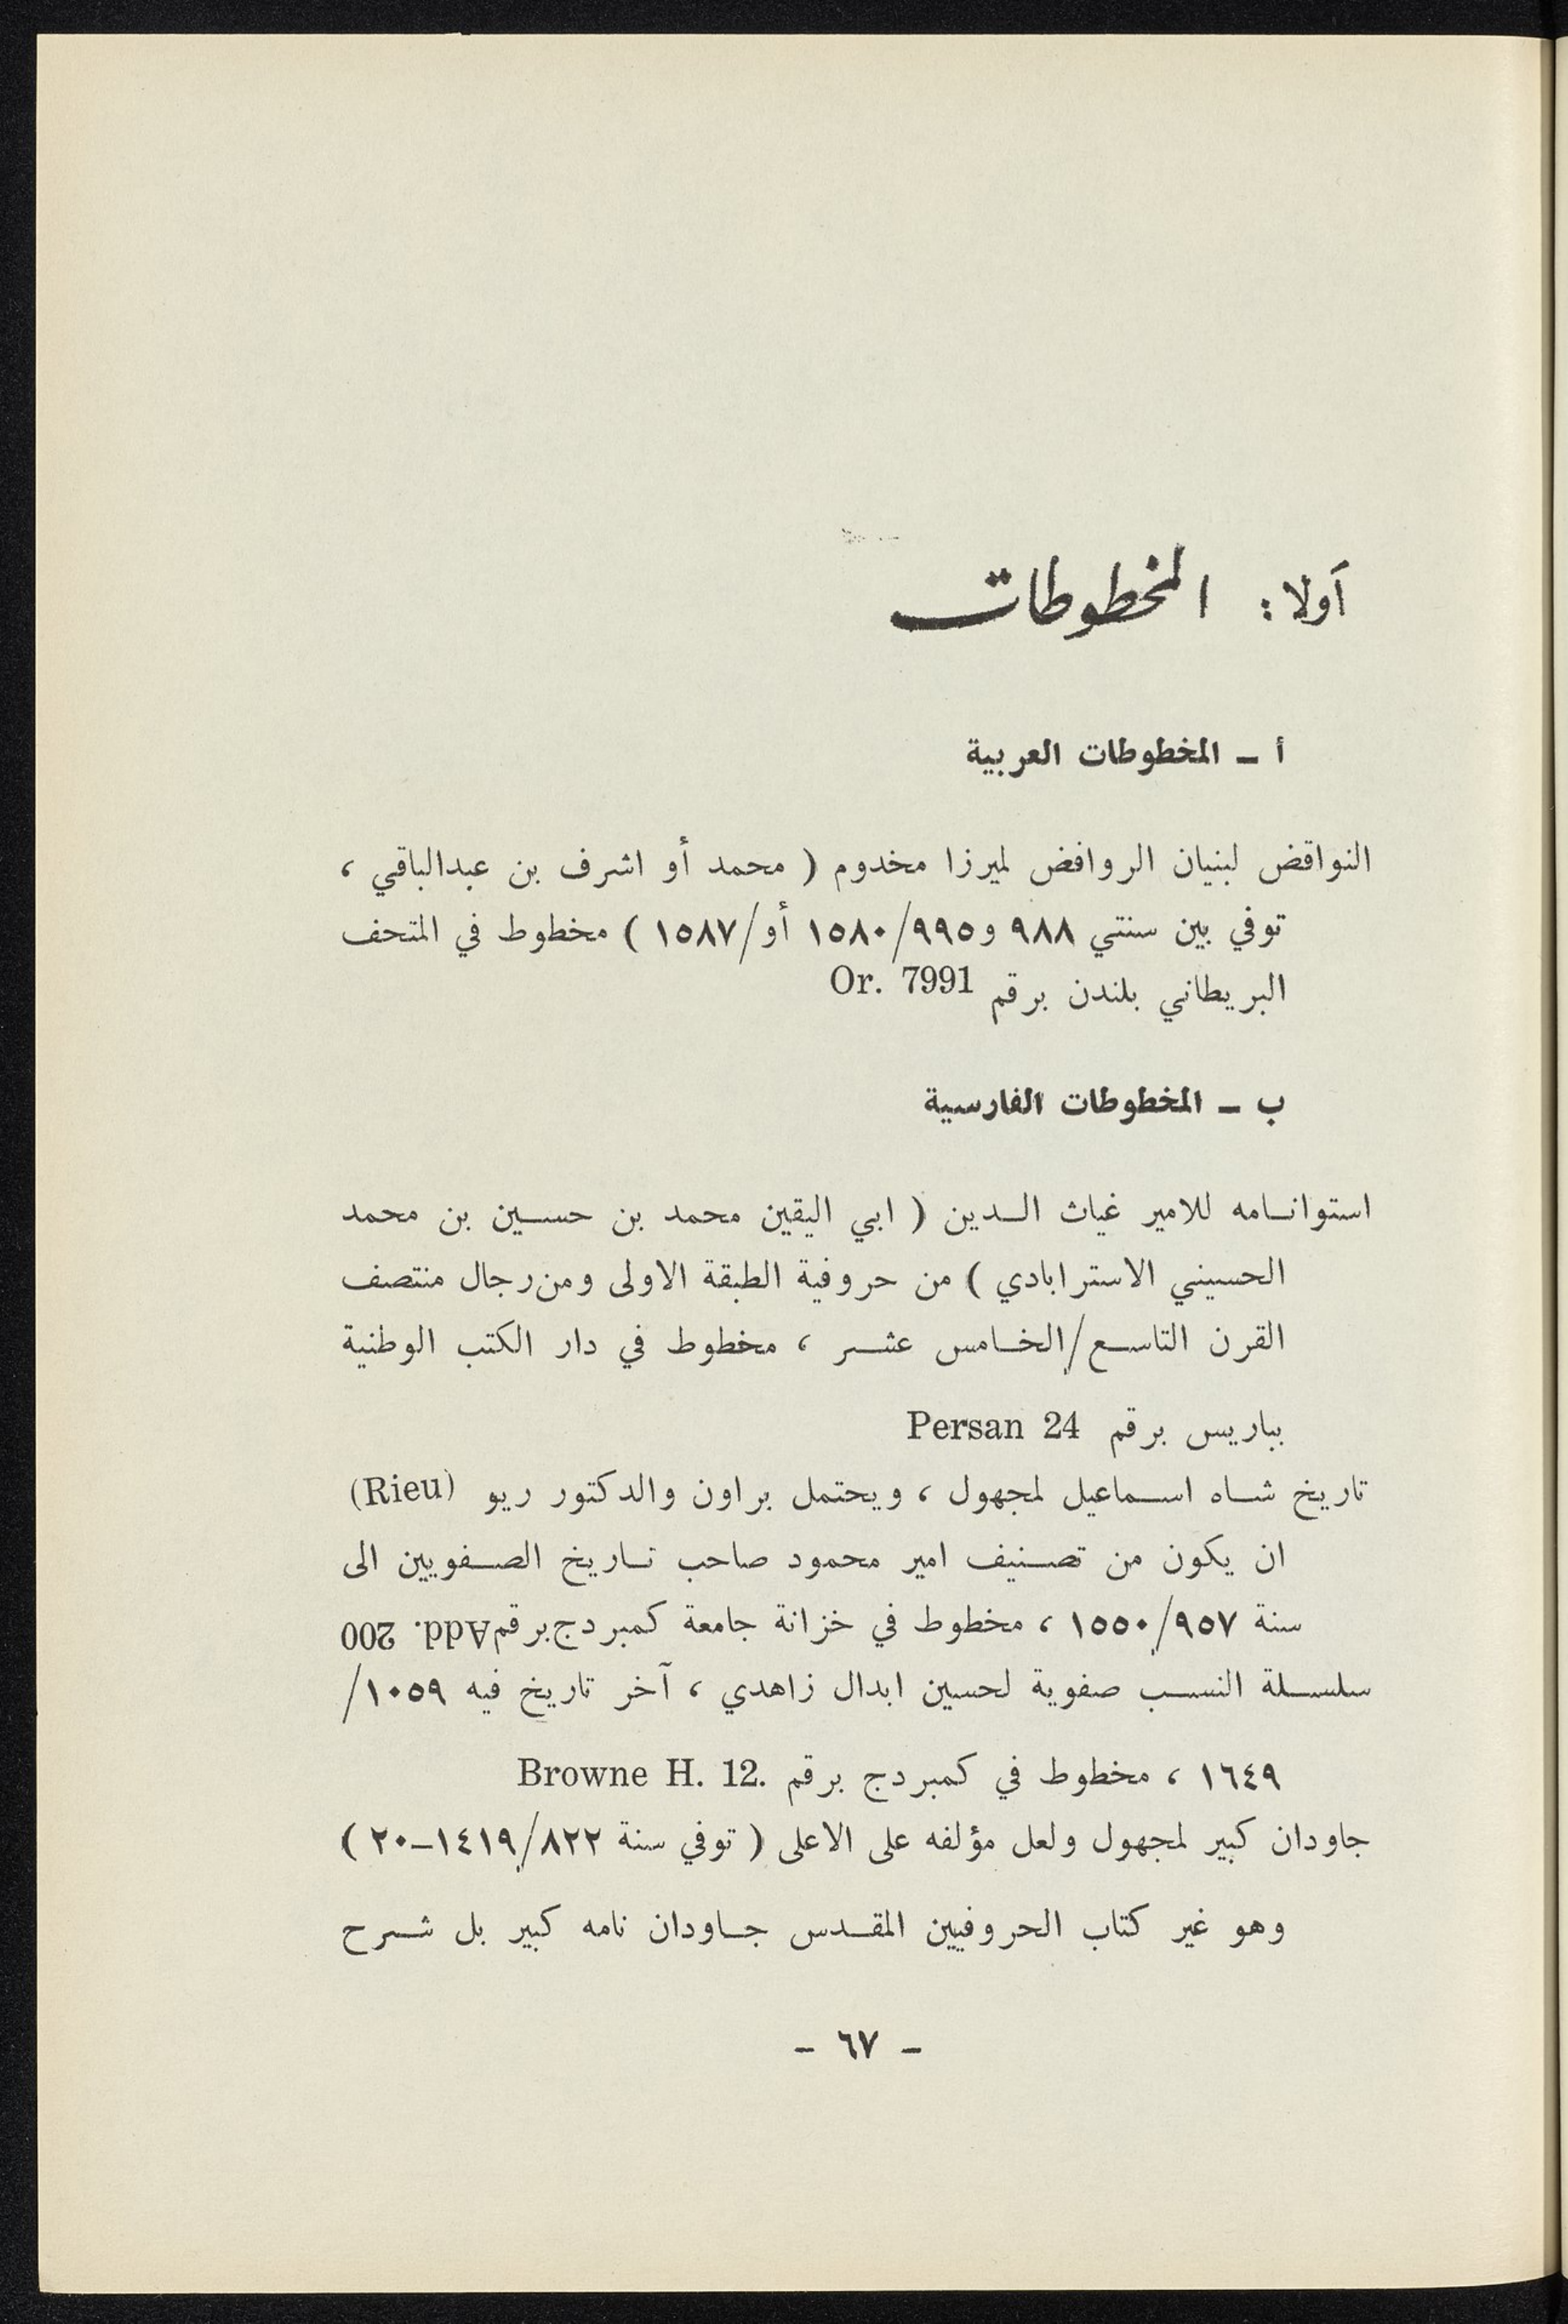 أولا: المخطوطات
أ ـ المخطوطات العربية
النواقض لبنيان الروافض لميرزا مخدوم ( محمد أو اشرف بن عبدالباقي ،
توفي بين سنتي ٩٨٨ و٩٩٥/١٥٨٠ أو/١٥٨٧ ) مخطوط في المتحف
البريطاني بلندن برقم Or. 7991
ب ـ المخطوطات الفارسية
استوانـامه للامير غياث الـدين ( ابي اليقين محمد بن حسـين بن محمد
الحسيني الاسترابادي ) من حروفية الطبقة الاولى ومن رجال منتصف
القرن التاسـع/الخـامس عشـر ، مخطوط في دار الكتب الوطنية
بباريس برقم Persan 24
تاريخ شـاه اسـماعيل لمجهول ، ويحتمل براون والدكتور ريو (Rieu)
ان يكون من تصـنيف امير محمود صاحب تـاريخ الصـفويين الى
سنة ٩٥٧/١٥٥٠ ، مخطوط في خزانة جامعة كمبردج برقم Add. 200
سلسـلة النسـب صفوية لحسين ابدال زاهدي ، آخر تاريخ فيه ١٠٥٩/
١٦٤٩ ، مخطوط في كمبردج برقم Browne H. 12.
جاودان كبير لمجهول ولعل مؤلفه على الاعلى ( توفي سنة ٨٢٢/١٤١٩ـ٢٠ )
وهو غير كتاب الحروفيين المقـدس جـاودان نامه كبير بل شـرح
ـ ٦٧ ـ